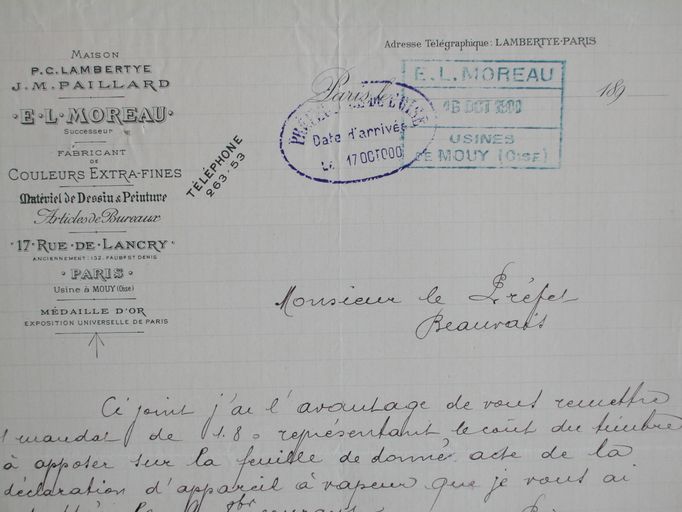 Adresse Télégraphique: LAMBERTYE-PARIS
MAISON
P.C. LAMBERTYE
J.M. PAILLARD
E·L·MOREAU
Successeur
FABRICANT
DE
COULEURS EXTRA-FINES
Matériel de Dessin & Peinture
Articles de Bureaux
17·RUE·DE·LANCRY
ANCIENNEMENT: 132. FAUBG ST DENIS
PARIS
Usine à MOUY (Oise)
MÉDAILLE D'OR
EXPOSITION UNIVERSELLE DE PARIS
TÉLÉPHONE
263-53
Paris, le 189
PRÉFECTURE DE L'OISE
Date d'arrivée
LE 17 OCT 000
E.L. MOREAU
16 OCT 1900
USINES
DE MOUY (OISE)
Monsieur le Préfet
Beauvais
Ci joint j'ai l'avantage de vous remettre
1 mandat de 1.80 représentant le coût du timbre
à apposer sur la feuille de donné acte de la
déclaration d'appareil à vapeur que je vous ai